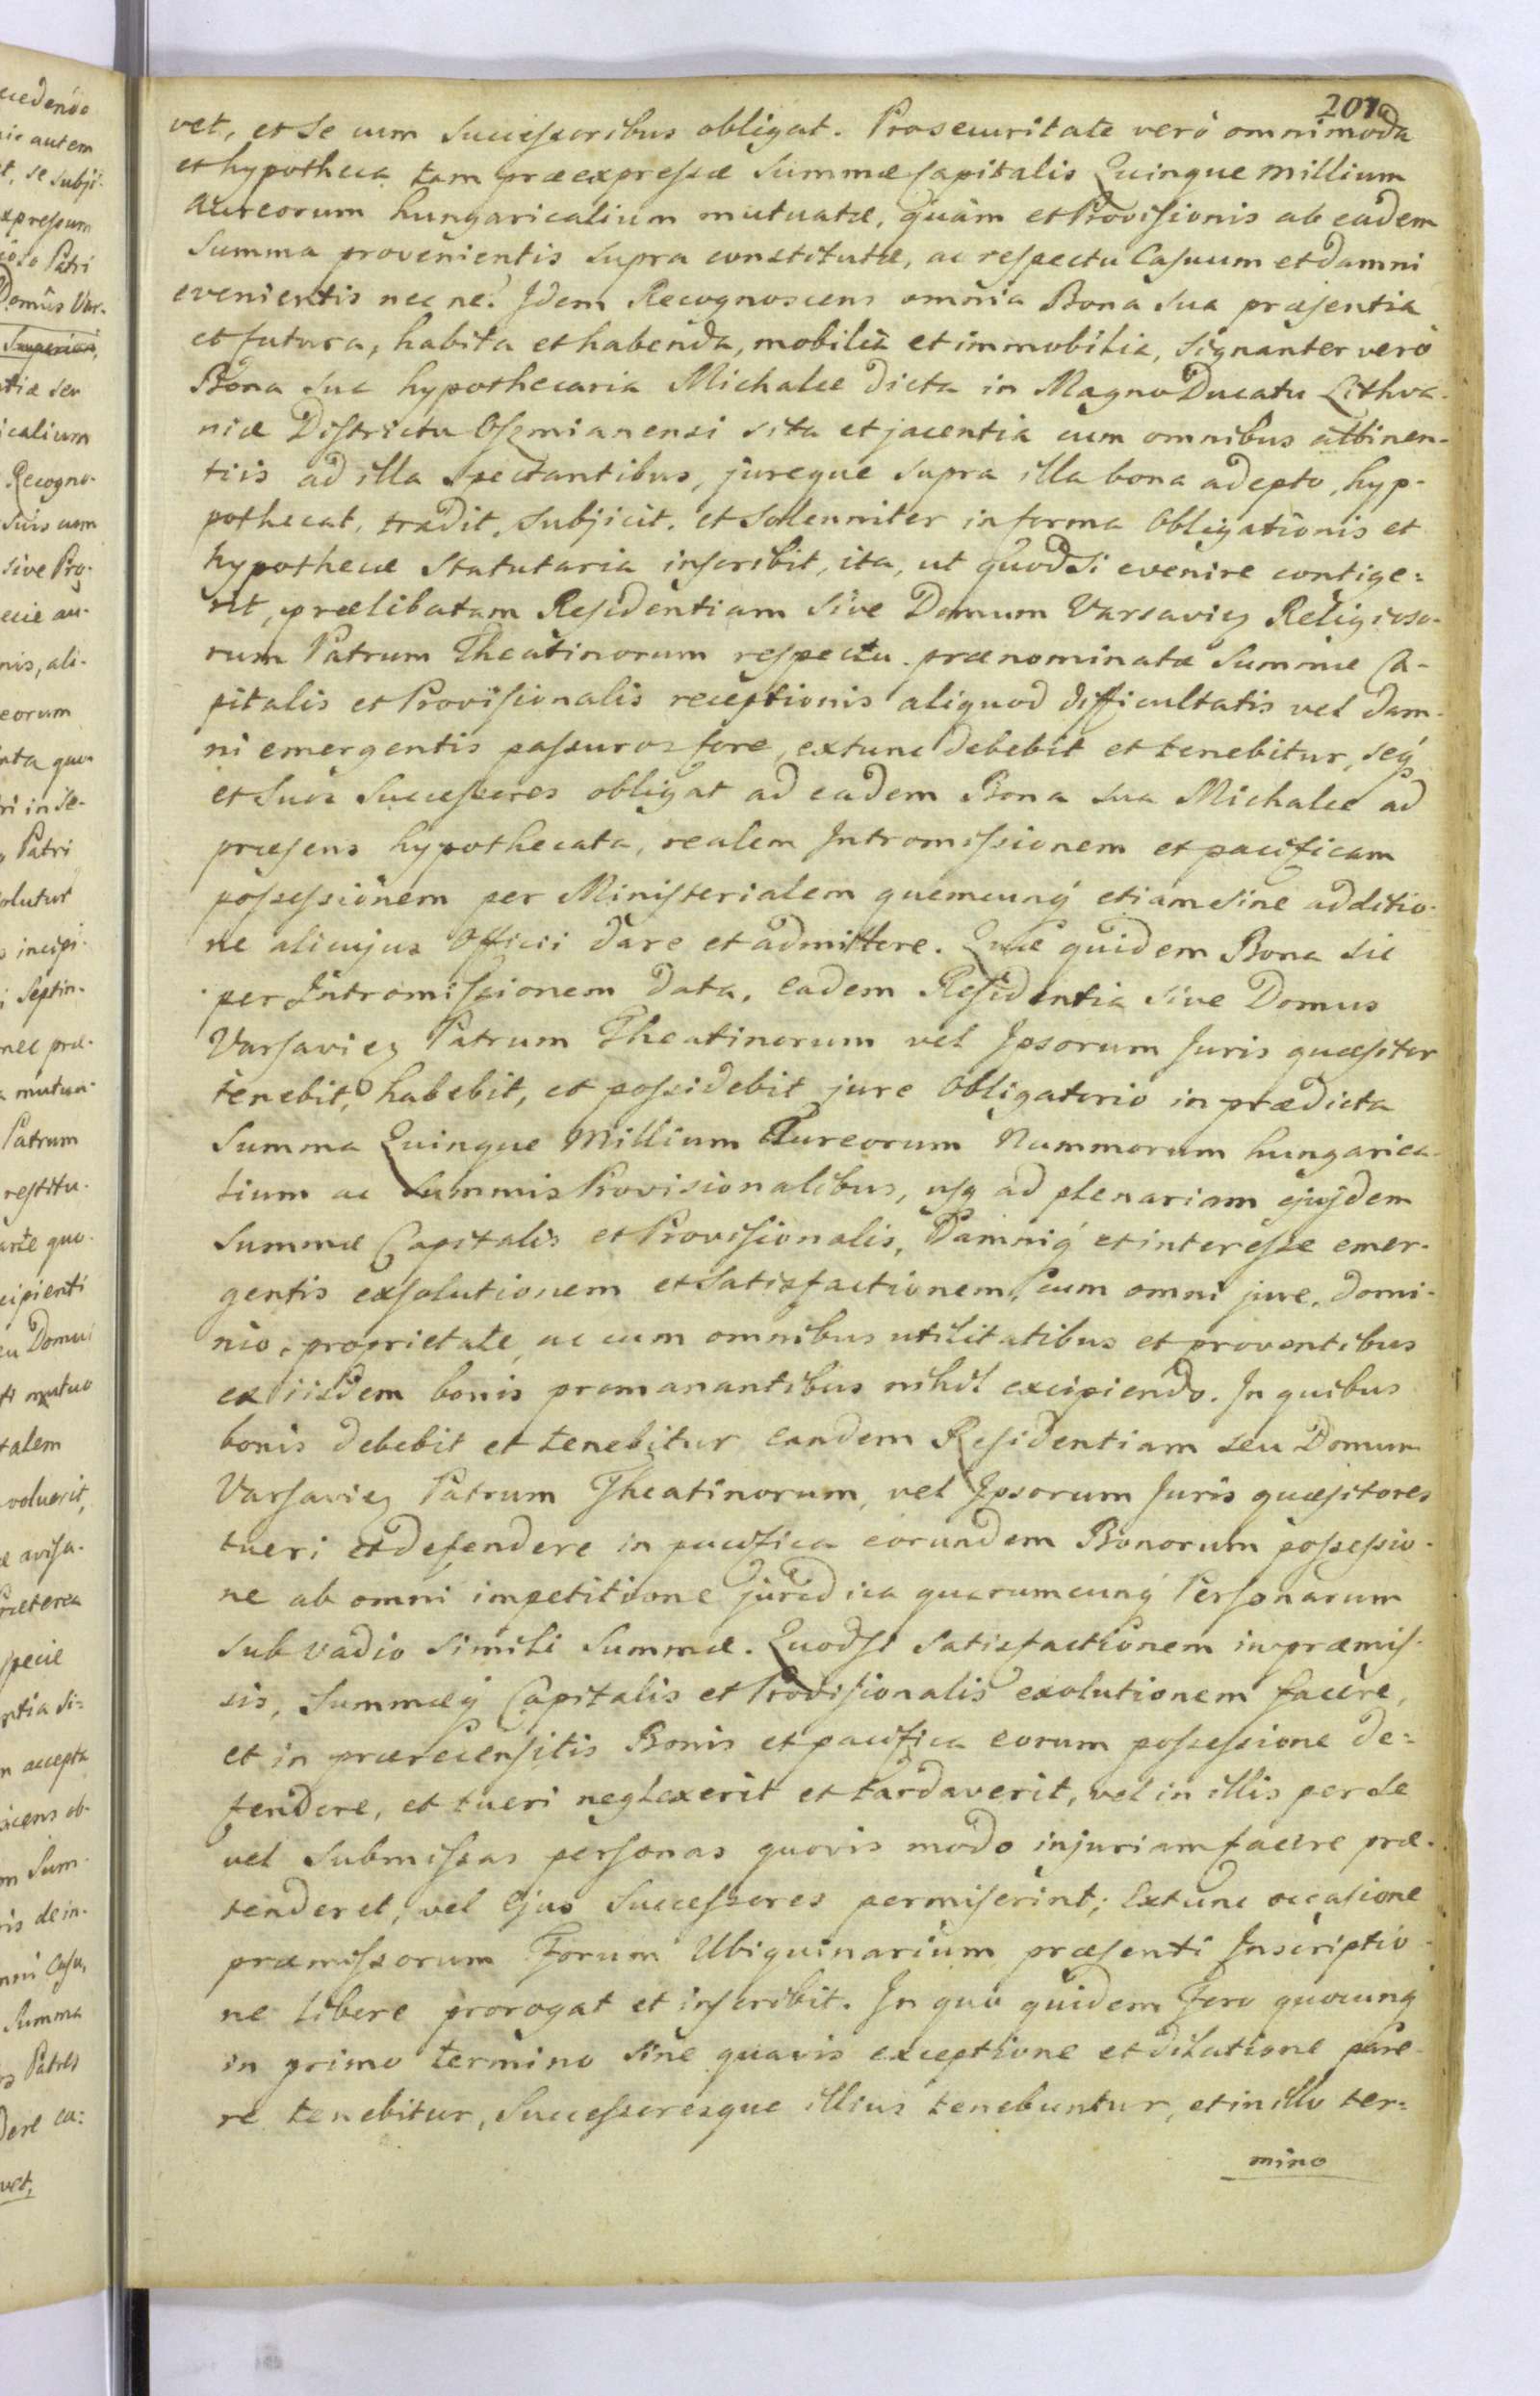 201
vet, et se cum Successoribus obligat. Prosecuritate verò omnimoda
et hypotheca tam præexpressæ Summæ Capitalis Quinque millium
Aureorum hungaricalium mutuatæ, quàm et Provisionis ab eadem
Summa provenientis supra constitutæ, ac respectu Casuum et damni
evenientis nec ne. Idem Recognoscens omnia Bona sua præsentia
et futura, habita et habenda, mobilia et immobilia, signanter verò
Bona sua hypothecaria Michalce dicta in Magno Ducatu Lithva-
niæ Districtu Oszmianensi sita et jacentia cum omnibus attinen-
tiis ad illa spectantibus, jureque supra illa bona adepto, hyp-
pothecat, tradit, subjicit, et solenniter in forma Obligationis et
hypothecæ statutaria inscribit, ita, ut quodsi evenire contige=
rit, prælibatam Residentiam sive Domum Varsavien Religioso-
rum Patrum Theatinorum respectu prænominatæ Summæ Ca-
pitalis et Provisionalis receptionis aliquod difficultatis vel dam-
ni emergentis passuros fore, extunc debebit et tenebitur, seq
et suos Successores obligat ad eadem Bona sua Michalce ad
præsens hypothecata, realem Intromissionem et pacificam
possessionem per Ministerialem quemcunq etiam sine additio-
ne alicujus Officii dare et admittere. Quæ quidem Bona sic
per Intromissionem data, eadem Residentia sive Domus
Varsavien Patrum Theatinorum vel Ipsorum Juris quæsitor
tenebit, habebit, et possidebit jure obligatorio in prædicta
Summa Quinque Millium Aureorum Nummorum hungarica-
lium ac Summis Provisionalibus, usq ad plenariam ejusdem
Summæ Capitalis et Provisionalis, Damniq et interesse emer-
gentis exsolutionem et satisfactionem, cum omni jure, domi-
nio, proprietate, ac cum omnibus utilitatibus et proventibus
ex iisdem bonis promanantibus nihil excipiendo. In quibus
bonis debebit et tenebitur eandem Residentiam seu Domum
Varsavien Patrum Theatinorum, vel Ipsorum Juris quæsitores
tueri et defendere in pacifica eorundem Bonorum possessio-
ne ab omni impetitione juridica quarumcunq Personarum
sub vadio simili Summæ. Quodsi satisfactionem in præmis-
sis, Summæq Capitalis et Provisionalis exolutionem facere,
et in prærecensitis Bonis et pacifica eorum possessione de=
fendere, et tueri neglexerit et tardaverit, vel in illis per se
vel submissas personas quovis modo injuriam facere præ-
tenderet, vel Ejus Successores permiserint; Extunc occasione
præmissorum Forum Ubiquinarium præsenti Inscriptio-
ne libere prorogat et inscribit. In quo quidem Foro quocunq
in primo termino sine quavis exceptione et dilatione pare-
re tenebitur, Successoresque illius tenebuntur, et in illo ter=
mino